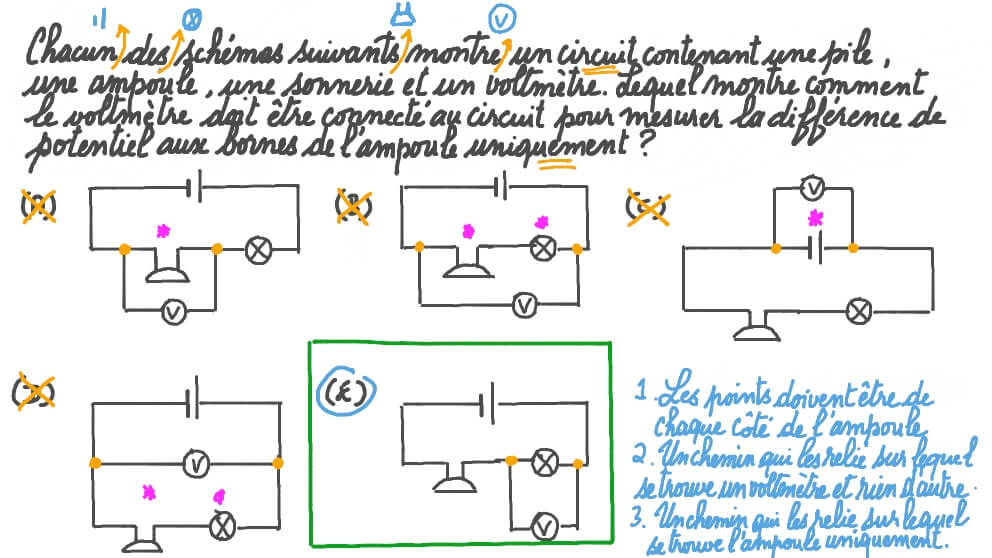 V
Chacun des schémas suivants montre un circuit contenant une pile,
une ampoule, une sonnerie et un voltmètre. Lequel montre comment
le voltmètre doit être connecté au circuit pour mesurer la différence de
potentiel aux bornes de l'ampoule uniquement ?
V
V
V
V
(E)
V
1. Les points doivent être de
chaque côté de l'ampoule
2. Un chemin qui les relie sur lequel
se trouve un voltmètre et rien d'autre.
3. Un chemin qui les relie sur lequel
se trouve l'ampoule uniquement.